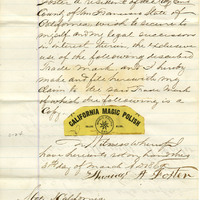 Foster a resident of the City and
County of San Francisco State of
California wish to secure to
myself and my legal successors
in interest herein, the exclusive
use of the following described
Trade Mark and I hereby
make and file herewith my
claim to the said Trade Mark
of which the following is a
Copy.
CALIFORNIA MAGIC POLISH
In Witness whereof I
have hereunto set my hand this
day of March
A. Foster
California